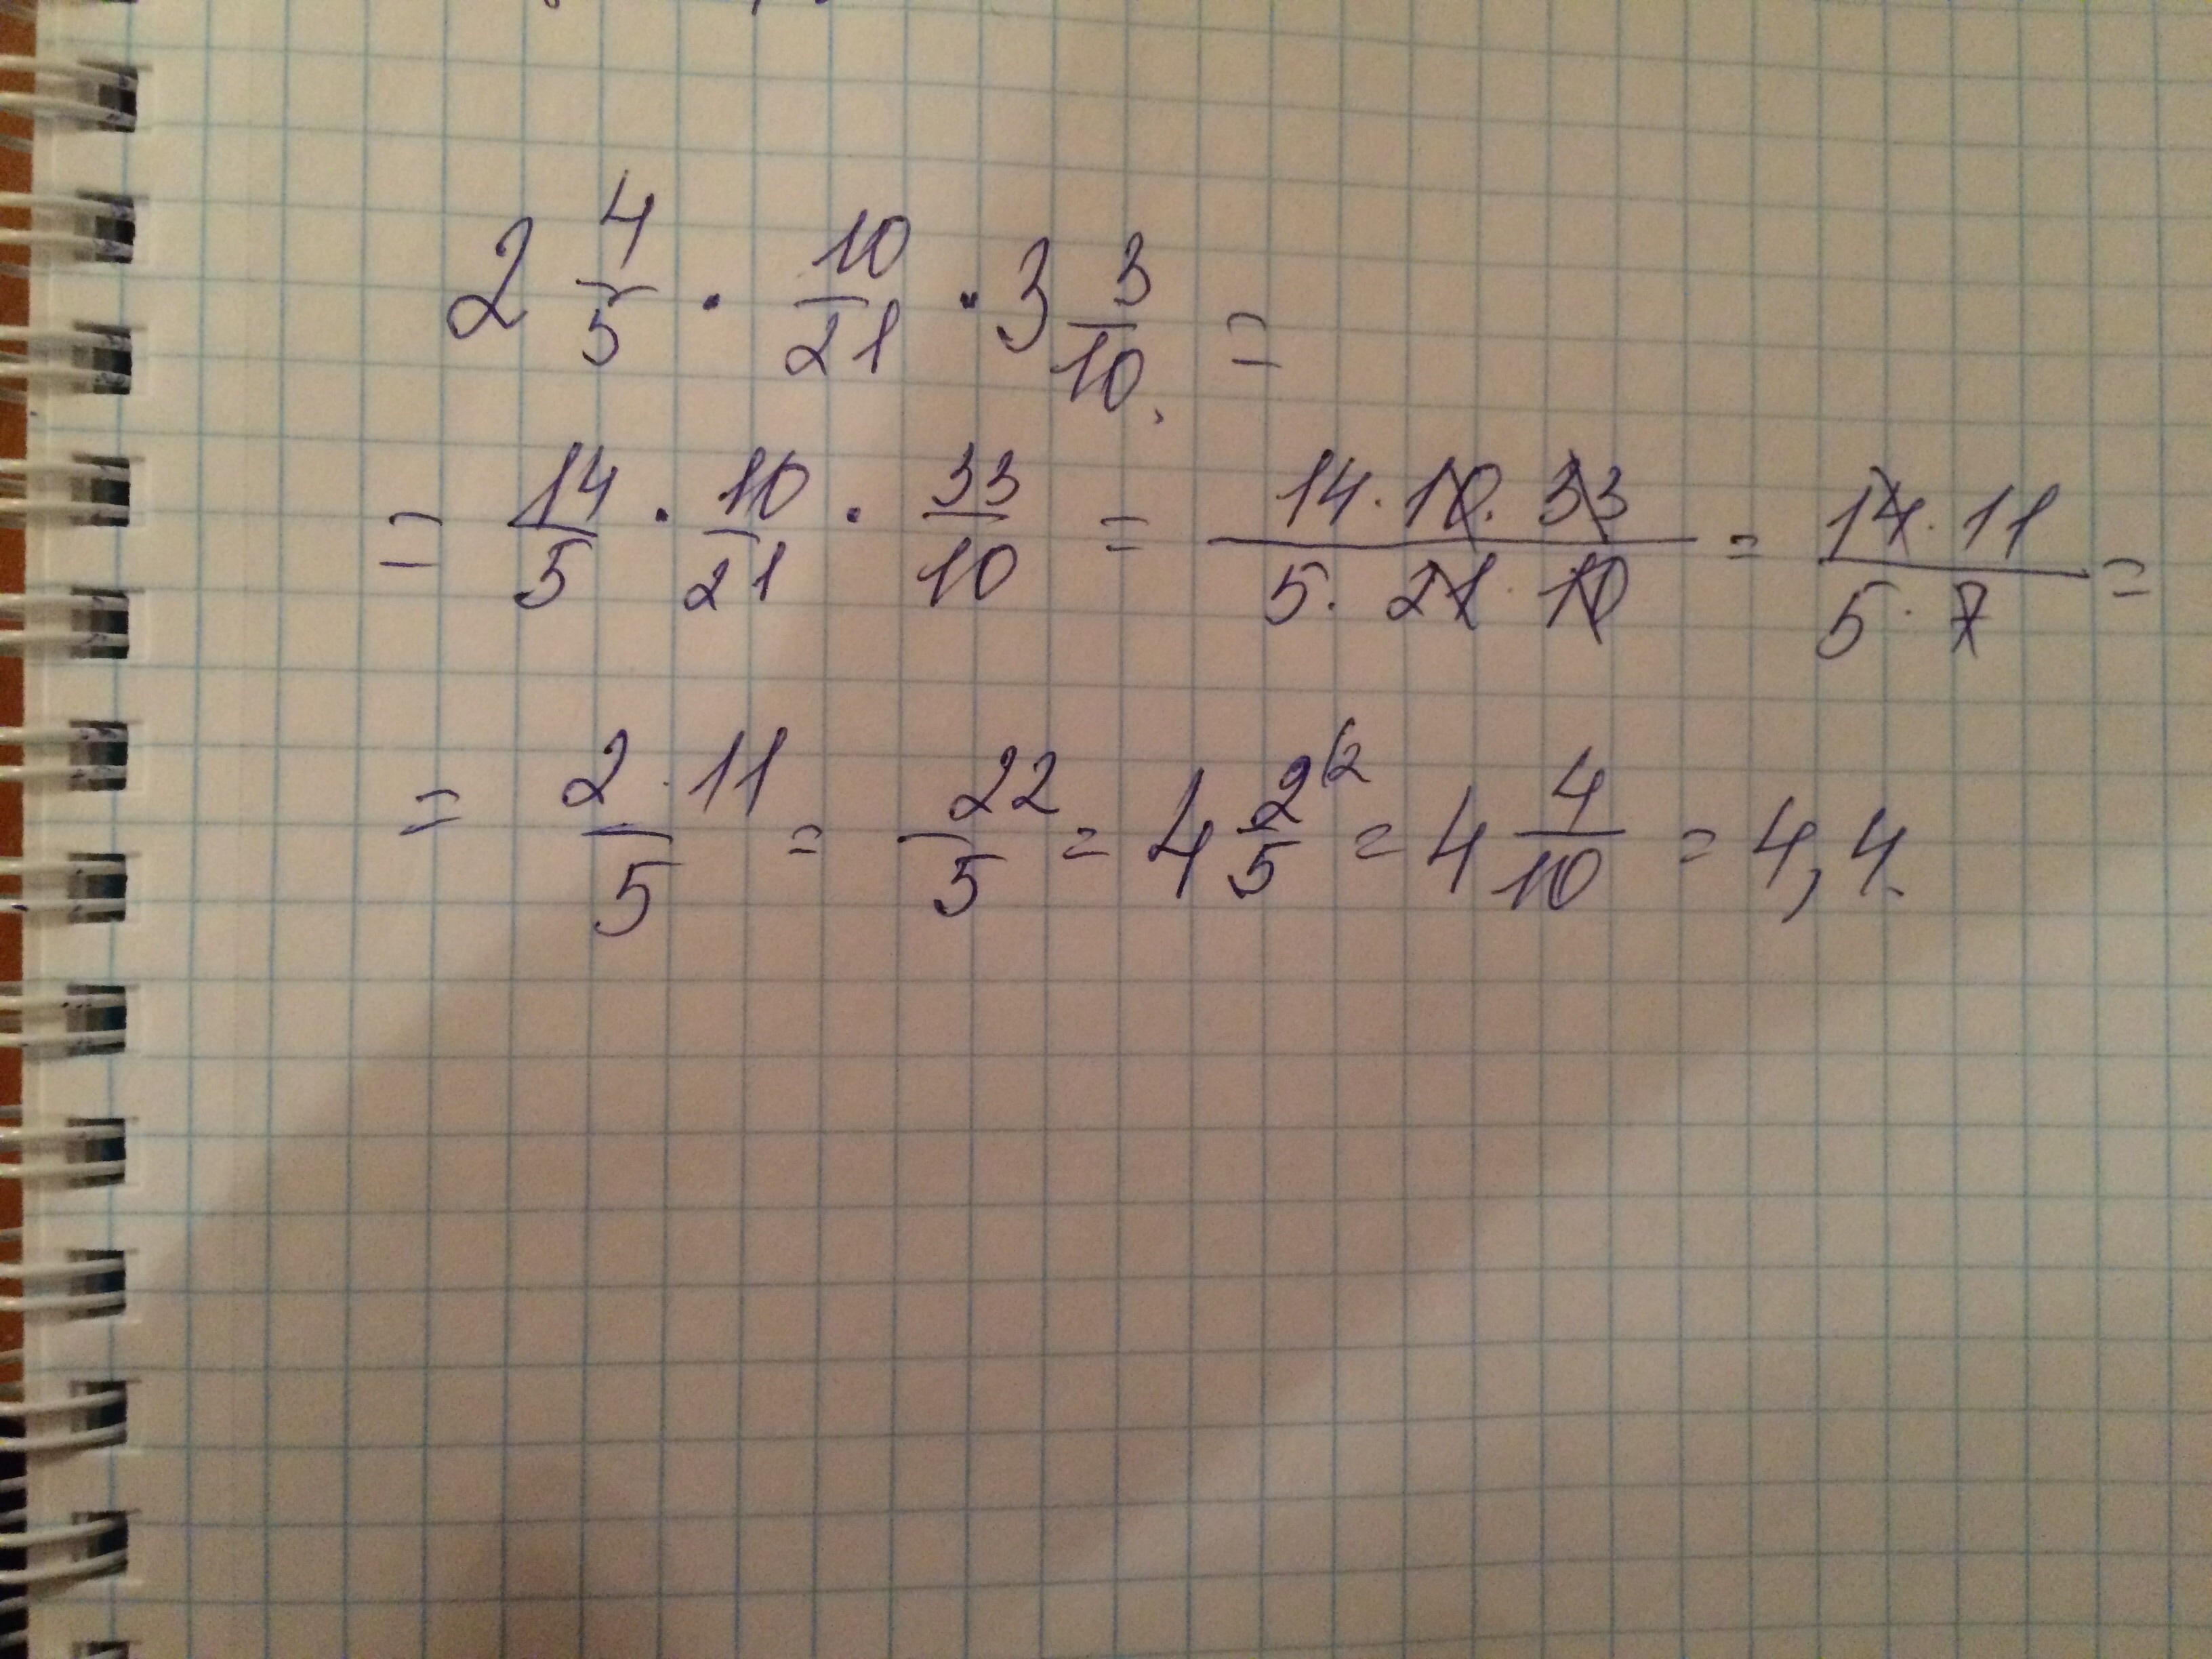 2 4/5 · 10/21 · 3 3/10 =
= 14/5 · 10/21 · 33/10 = 14 · 10 · 33 / 5 · 21 · 10 = 14 · 11 / 5 · 7 =
= 2 · 11 / 5 = 22/5 = 4 2/5 (2 = 4 4/10 = 4,4.